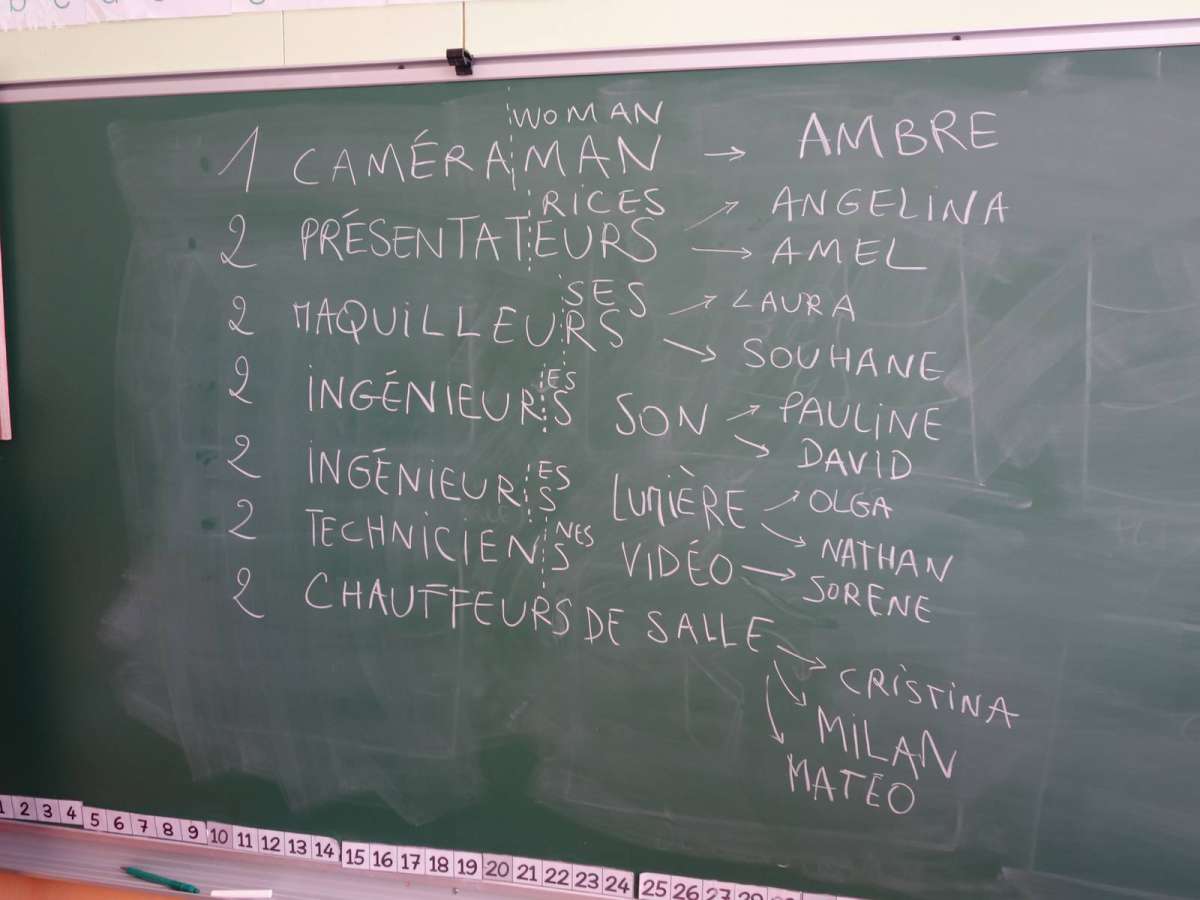 WOMAN
1 CAMÉRAMAN → AMBRE
RICES
2 PRÉSENTATEURS → ANGELINA
→ AMEL
SES
2 MAQUILLEURS → LAURA
→ SOUHANE
ES
2 INGÉNIEURS SON → PAULINE
→ DAVID
ES
2 INGÉNIEURS LUMIÈRE → OLGA
→ NATHAN
NES
2 TECHNICIENS VIDÉO → SORENE
2 CHAUFFEURS DE SALLE → CRISTINA
→ MILAN
→ MATEO
1 2 3 4 5 6 7 8 9 10 11 12 13 14 15 16 17 18 19 20 21 22 23 24 25 26 27 28